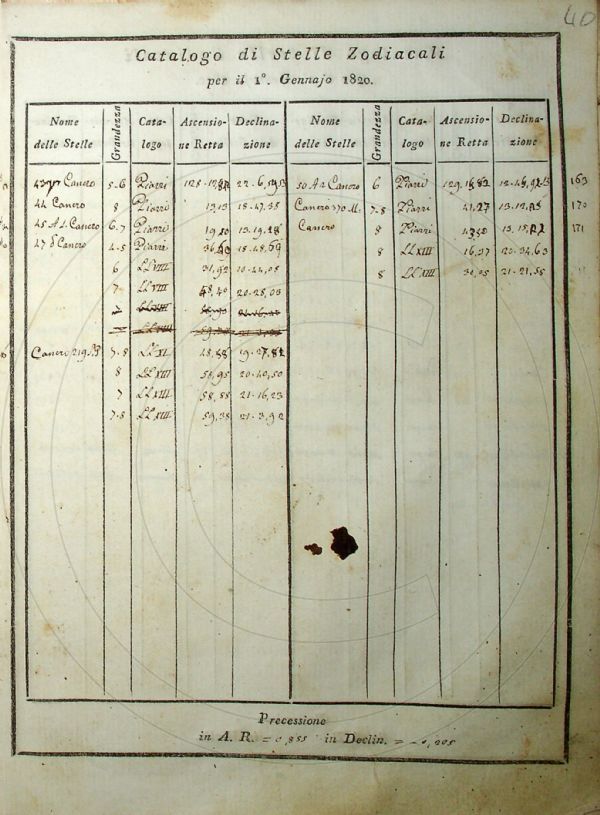 40
Catalogo di Stelle Zodiacali
per il 1°. Gennajo 1820.
Nome delle Stelle Grandezza Cata- logo Ascensio- ne Retta Declina- zione Nome delle Stelle Grandezza Cata- logo Ascensio- ne Retta Declina- zione
43 Cancro 5-6 Piazzi 50 A2 Cancro 6 Piazzi 163
44 Cancro 8 Piazzi 13,13 18-47,35 Cancro 170 M. 7-8 Piazzi 41,27 170
45 A1 Cancro 6-7 Piazzi 13-19,28 Cancro 8 Piazzi 171
47 δ Cancro 4-5 Piazzi 8 LLXIII 16,37 20-34,63
6 LLVIII 31,92 8 LLXIII 30,05 21-21,58
7 LLVIII 48,40 20-28,03
7 LLXIII
LLXIII
Cancro 219 B 7-8 LLXI 19-27,82
8 LLXIII 58,95 20-40,50
7 LLXIII 58,88 21-16,23
7-8 LLXIII 59,38 21-3,92
Precessione
in A. R. = 0,855 in Declin. = -0,205